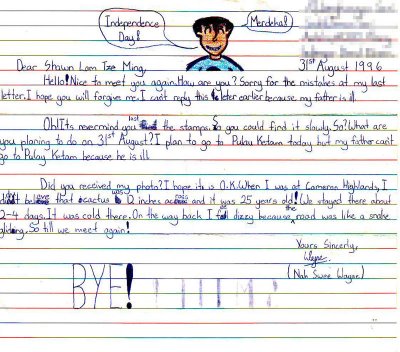 Independence Day!
Merdeka!
Dear Shawn Lam Tze Ming,
31st August 1996
Hello! Nice to meet you again. How are you? Sorry for the mistakes at my last
letter. I hope you will forgive me. I can't reply this letter earlier because my father is ill.
Oh! Its nevermind you lost the stamps. So you could find it slowly. So? What are
you planing to do on 31st August? I plan to go to Pulau Ketam today but my father can't
go to Pulau Ketam because he is ill.
Did you received my photo? I hope its is O.K. When I was at Cameron Highlands, I
didn't believe that cactus was 12 inches across and it was 25 years old! We stayed there about
2-4 days. It was cold there. On the way back I fell dizzy because the road was like a snake
gliding. So till we meet again!
Yours Sincerely,
Wayne
(Nah Swee Wayne)
BYE!